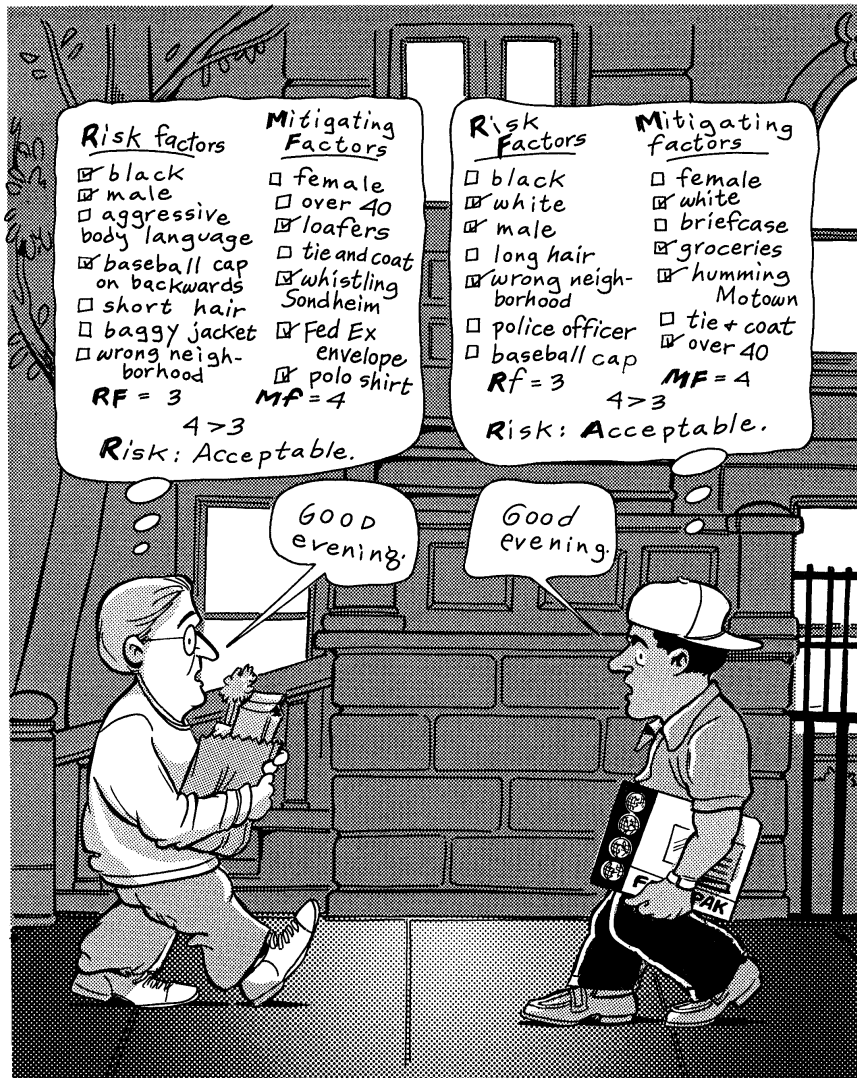 Risk factors
☑ black
☑ male
☐ aggressive
body language
☑ baseball cap
on backwards
☐ short hair
☐ baggy jacket
☐ wrong neigh-
borhood
RF = 3
Mitigating
Factors
☐ female
☐ over 40
☑ loafers
☐ tie and coat
☑ whistling
Sondheim
☑ Fed Ex
envelope
☑ polo shirt
Mf = 4
4 > 3
Risk: Acceptable.
Risk
Factors
☐ black
☑ white
☑ male
☐ long hair
☑ wrong neigh-
borhood
☐ police officer
☐ baseball cap
Rf = 3
Mitigating
factors
☐ female
☑ white
☐ briefcase
☑ groceries
☑ humming
Motown
☐ tie + coat
☑ over 40
MF = 4
4 > 3
Risk: Acceptable.
GOOD
evening.
Good
evening.
F
PAK